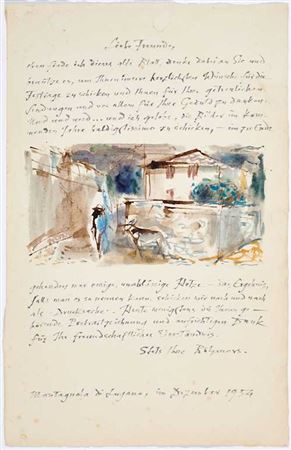 Liebe Freunde,
eben finde ich dieses alte Blatt, denke dabei an Sie und
benütze es, um Ihnen immer herzlichste Wünsche für die
Festtage zu schicken und Ihnen für Ihre
Sendungen und vor allem für Ihre Geduld zu danken.
und und ... und ich gelobe, die Bilder im kom-
menden Jahre baldigstissimo zu schicken, — ein zu Ende
nur einige, unablässige — das Ergebnis,
falls man es so nennen kann, schicken wir nach und nach
als „Drucksache“. Heute wenigstens die Ihnen ge-
hörende und aufrichtigen Dank
für Ihr freundschaftliches Verständnis.
Stets Ihre
Montagnola di Lugano, im Dezember 1954